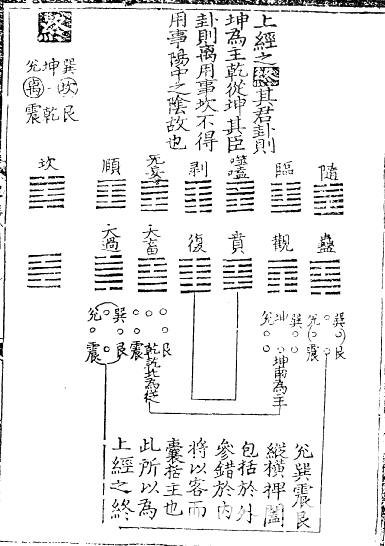 上經之其君卦則
坤為主乾從坤其臣
卦則离用事坎不得
用事陽中之陰故也
巽坎艮
坤乾
兌离震
隨
臨
噬嗑
剥
无妄
頤
坎
蠱
觀
賁
復
大畜
大過
巽艮
兌震
巽
坤
兌
坤南為主
艮
乾乾北為從
巽艮
兌震
兌巽震艮
縱橫捭闔
包括於外
參錯於内
將以客而
囊括主也
此所以為
上經之終